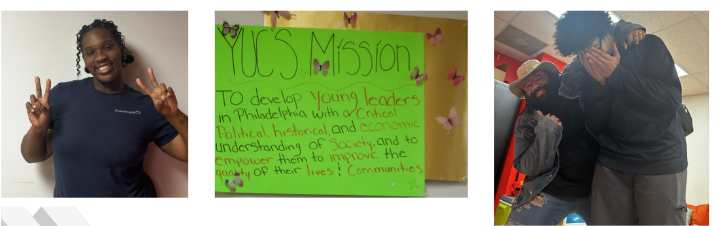 YUC'S Mission
TO develop young leaders
in Philadelphia with a Critical
Political, historical, and economic
understanding of Society, and to
empower them to improve the
quality of their lives & Communities